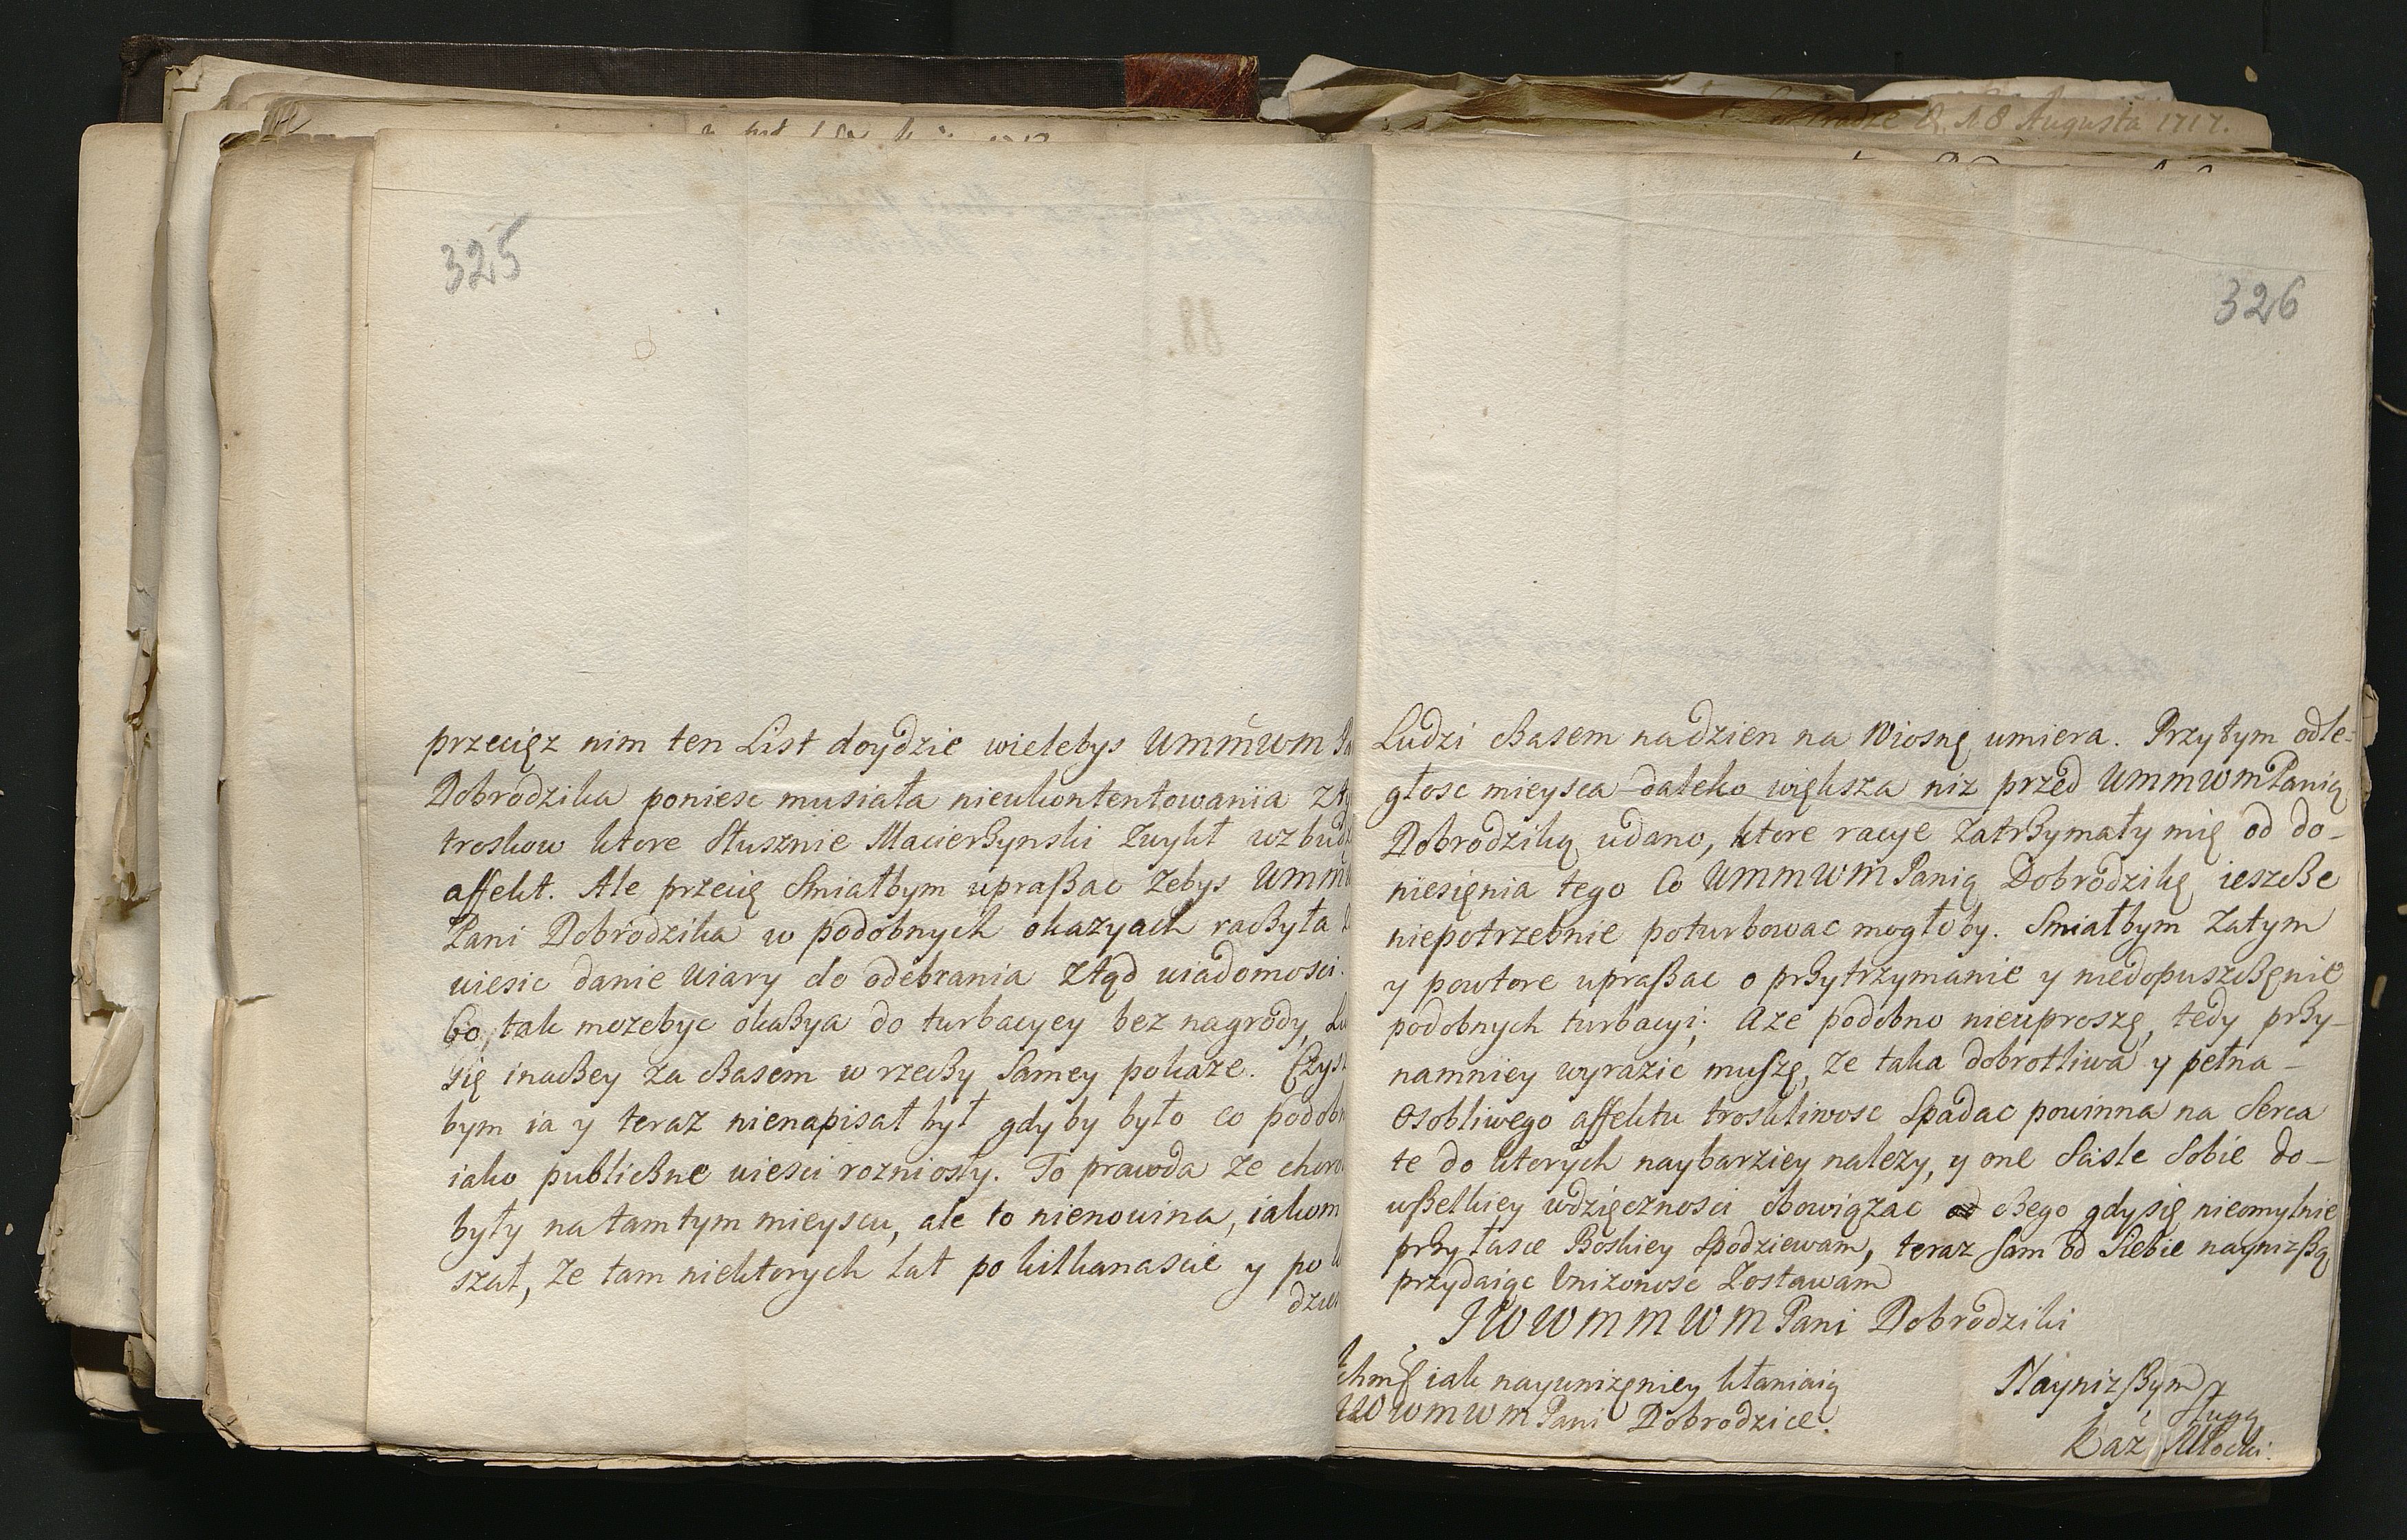 Augusta 1717.
325
przecięz nim ten List doydzie wielebys UMMWM
Dobrodzika poniesc musiała nieukontentowaniia
troskow ktore Słusznie Macierßynski Zwykł
affekt. Ale przecię Smiałbym upraßac zebys
Pani Dobrodzika w podobnych okazyach raßyła
wiesic danie wiary do odebrania Ztąd wiadomosci.
bo, tak mozebyc okaßya do turbacyey bez nagrody,
się inaßey za ßasem w rzeßy Samey pokaze.
bym ia y teraz nienapisał był gdyby było co
iako publißne wiesci rozniosły. To prawda ze
były na tamtym mieyscu, ale to nienowina, iakom
szał, Ze tam niektorych Lat po kilkanascie y po
326
Ludzi ßasem nadzien na Wiosnę umiera. Przytym odle-
głosc mieysca daleko większa niz przed UMMWMPanią
Dobrodziką udano, ktore racye Zatrßymały mię od do-
niesięnia tego Co UMMWMPanią Dobrodzikę ieszße
niepotrzebnie poturbowac mogłoby. Smiałbym Zatym
y powtore upraßac o prßytrzymanie y niedopuszßęnie
podobnych turbacyi; Aze podobno nieuproszę, tedy prßy-
namniey wyrazic muszę, Ze taka dobrotliwa y pełna-
Osobliwego affektu troskliwosc Spadac powinna na Serca
te do ktorych naybarziey nalezy, y one Sisle Sobie do-
wßelkiey wdzięcznosci obowiązac ßego gdy się nieomylnie
prßy łasce Boskiey Spodziewam, teraz Sam od Siebie naynizßą
przydaiąc Unizonosc Zostawam
JWWMMWMPani Dobrodziki
iak nayunizęniey kłaniaią
WWMWMPani Dobrodzice.
Nayniżßym
Sługą
Kaź Młocki.